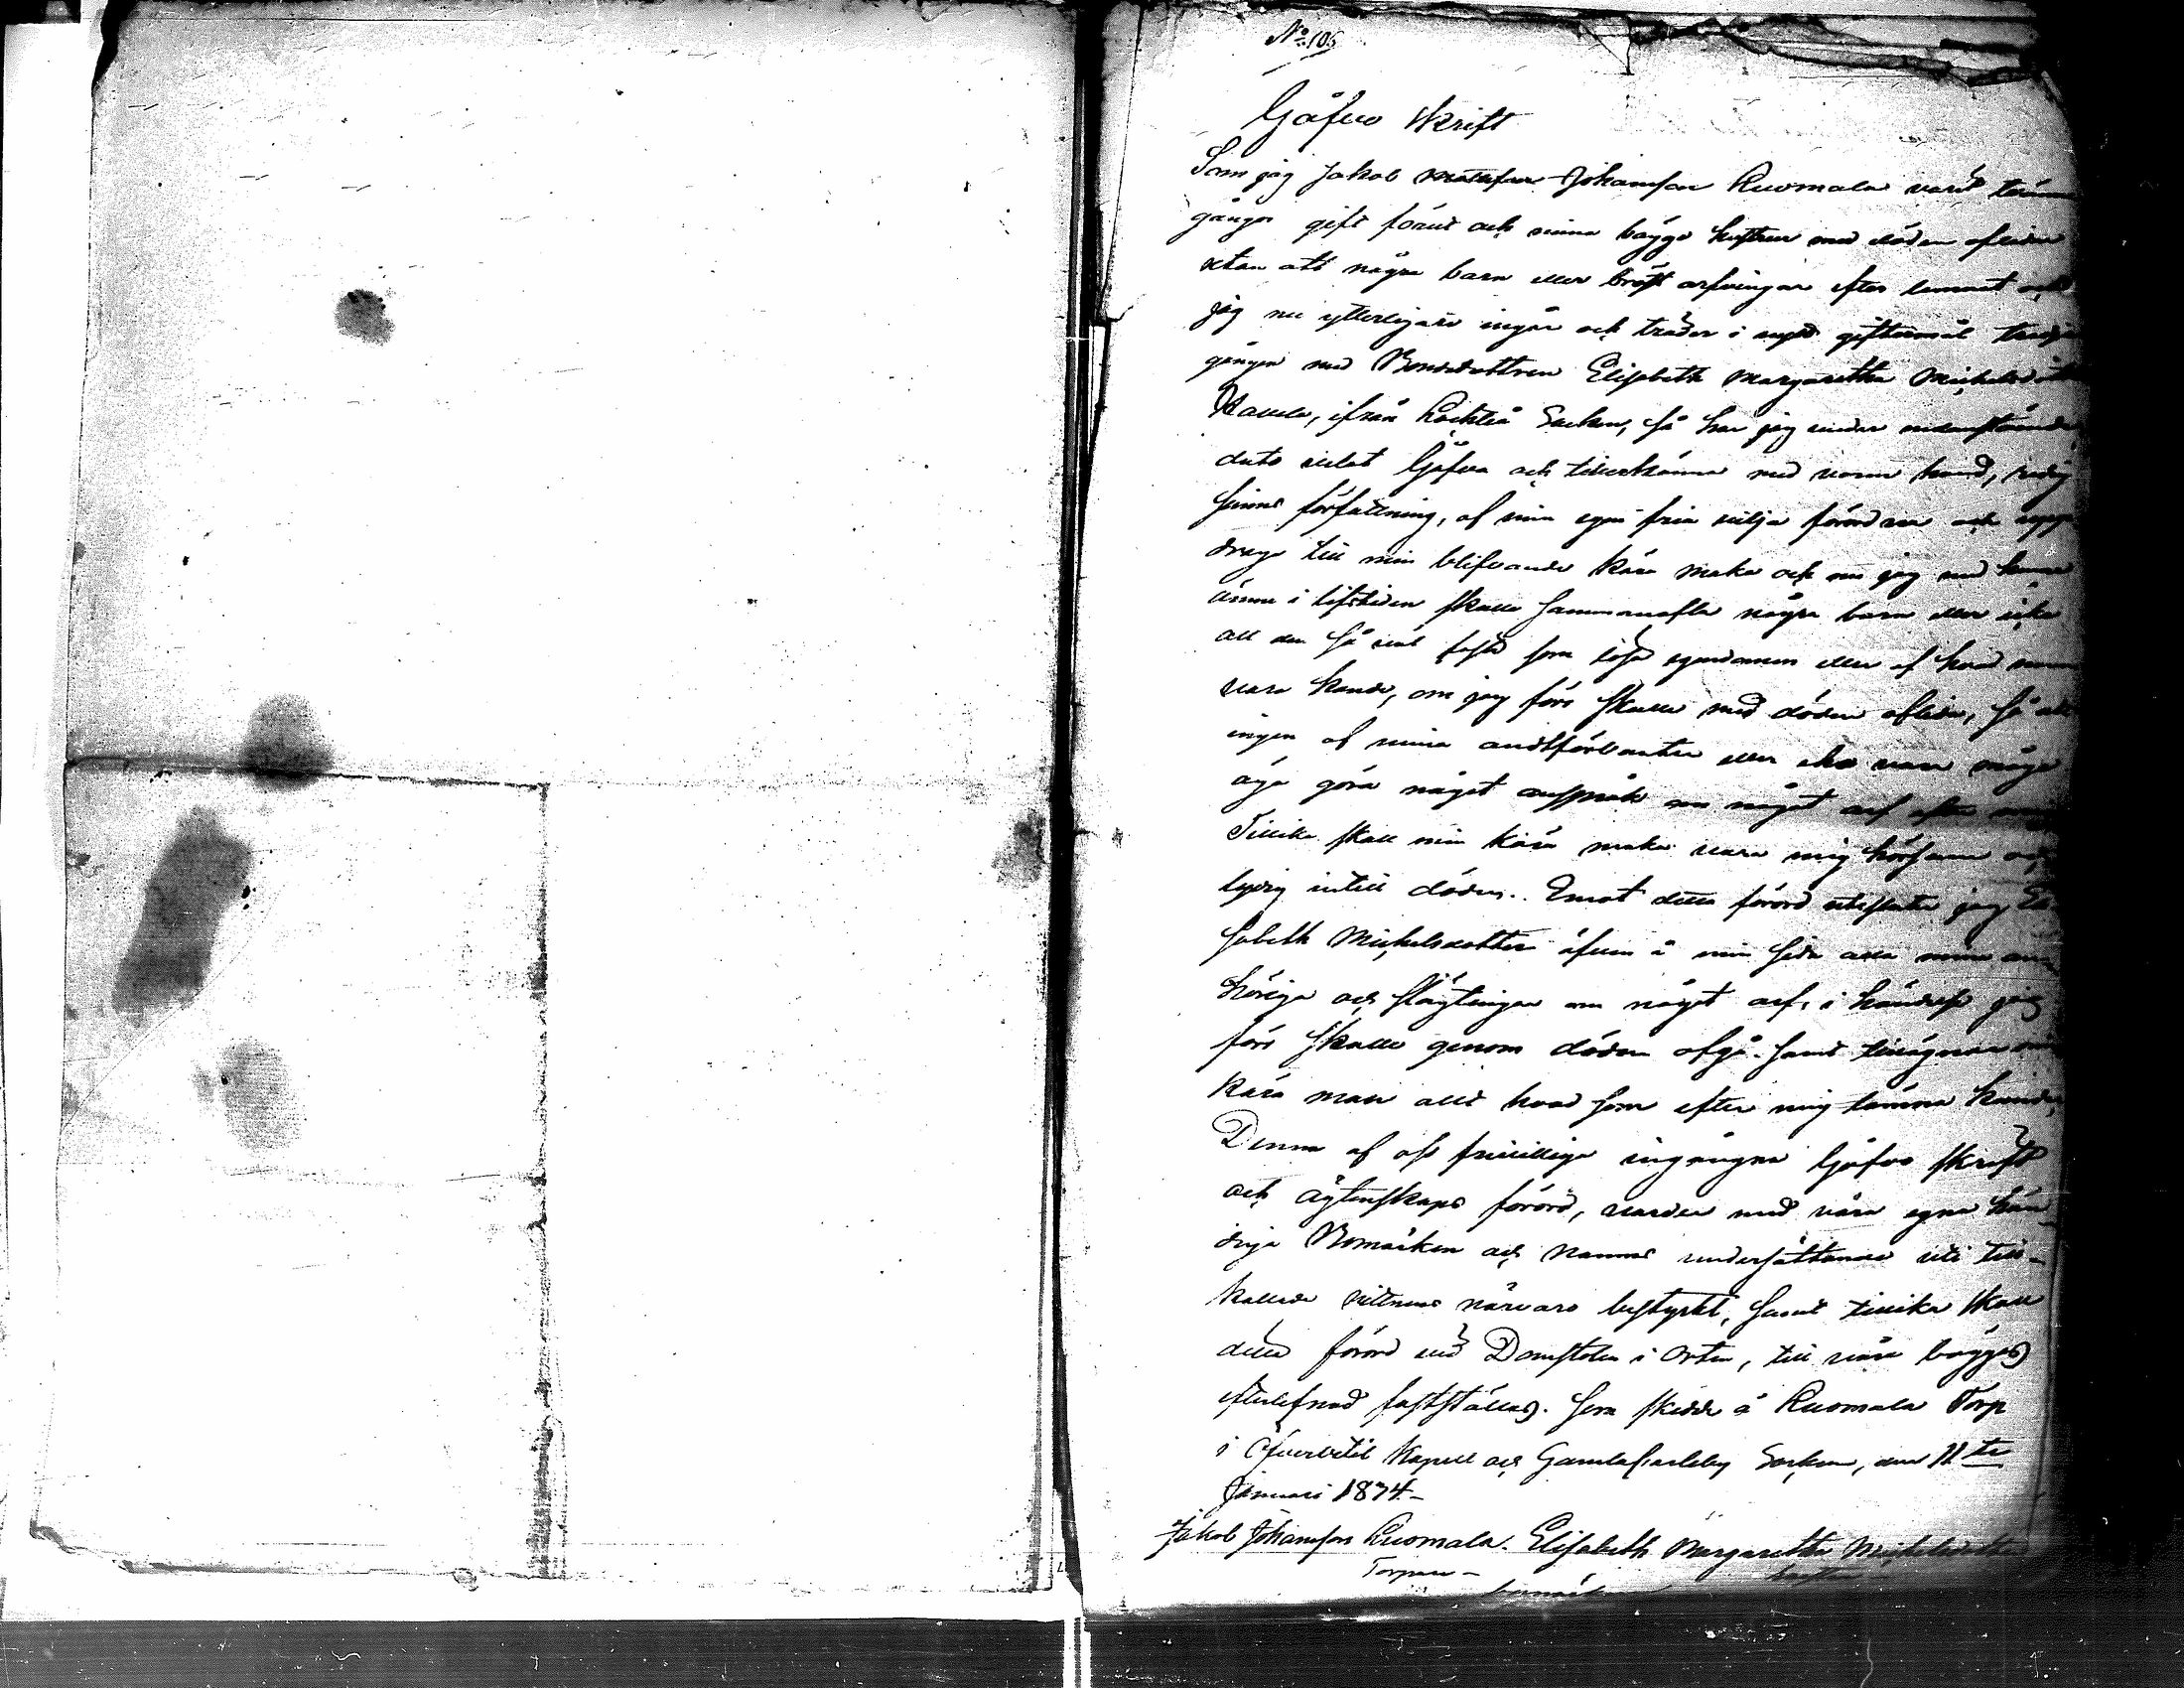 No 105
Gåfvo Skrift
Som jag Jakob Johansson Ruomala varit
gånger gift förut och mina bägge hustrur med döden aflidne
utan att några barn eller bröst arfvingar efter lemnat och
jag nu ytterligare ingår och träder i nytt giftermål tredje
gången med Bondedottren Elisabeth Margaretha Michelsdotter
ifrån Lochteå Socken, så har jag under nedanstående
dato velat Gåfva och tillerkänna med varm hand, redig
sinnes författning, af min egen fria vilja förordna och upp
draga till min blifvande kära maka och om jag med henne
ännu i lifstiden skulle sammanafla några barn eller icke
all den så väl fasta som lösa egendomen eller af hvad namn
vara kunde, om jag förr skulle med döden aflida, så att
ingen af mina eller eho vara måge
äga göra något anspråk om något arf efter
Tillika skall min kära maka vara mig hörsam och
lydig intill döden. Emot detta förord utesluter jag Eli
sabeth Michelsdotter äfven å min sida alla mina an
höriga och slägtingar om något arf, i händelse jag
förr skulle genom döden afgå. samt tillägnar min
kära man allt hvad som efter mig lämna kunde,
Denna af oss frivilligt ingångna Gåfvo skrift
och ägtenskaps förord, varder med våra egna hän
diga Bomärken och namns undersättande uti till-
kallade vittnens närvaro bestyrkt, samt tillika skall
detta förord vid Domstolen i Orten, till våra bägges
efterlefnad fastställas. Som skedde å Ruomala Torp
i Öfvervetil Kapell och Gamlakarleby Socken, den 11te
Januari 1874-
Jakob Johansson Ruomala. Elisabeth Margaretha Michelsdotter
Torpare -
bomärken